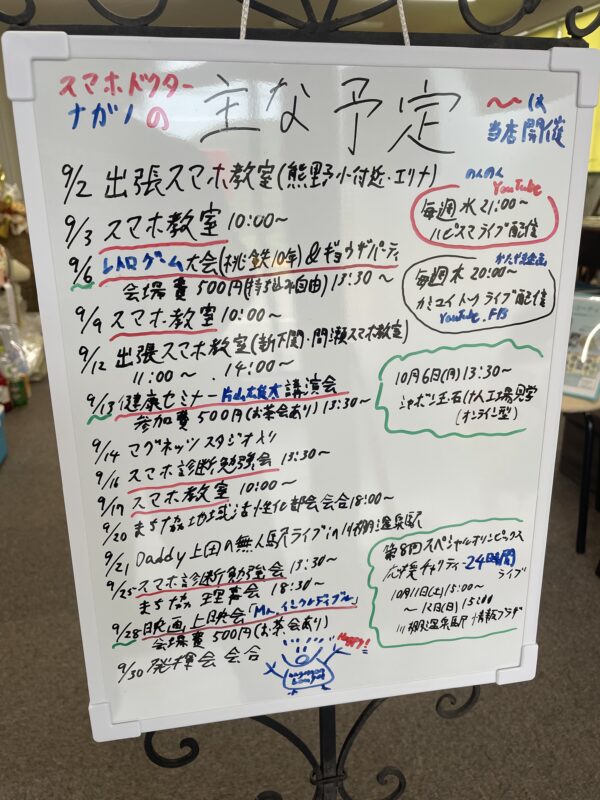 スマホドクター
ナガノの
主な予定
〜は
当店開催
9/2 出張スマホ教室(熊野小付近・エリナ)
9/3 スマホ教室 10:00〜
9/6 レトロゲーム大会(桃鉄10年)&ギョウザパーティ
会場費500円(持ち込み自由) 13:30〜
9/9 スマホ教室 10:00〜
9/12 出張スマホ教室(新下関・間瀬スマホ教室)
11:00〜 14:00〜
9/13 健康セミナー 講演会
参加費500円(お茶会あり) 13:30〜
9/14 マグネッツスタジオ入り
9/16 スマホ診断勉強会 13:30〜
9/17 スマホ教室 10:00〜
9/20 まち協地域活性化部会会合18:00〜
9/21 Daddy上田の無人駅ライブin川棚温泉駅
9/25 スマホ診断勉強会 13:30〜
まち協 理事会 18:30〜
9/28 映画上映会「Mr.インクレディブル」
会場費500円(お茶会あり)
9/30 発揮会 会合
のんのん
YouTube
毎週水21:00〜
ハピスマライブ配信
毎週木20:00〜
カミユイトーク ライブ配信
YouTube.FB
10月6日(月)13:30〜
シャボン玉石けん工場見学
(オンライン型)
第8回スペシャルオリンピックス
応援チャリティー24時間
ライブ
10月11日(土)15:00〜
〜12日(日)15:00
川棚温泉駅 情報プラザ
Happy!